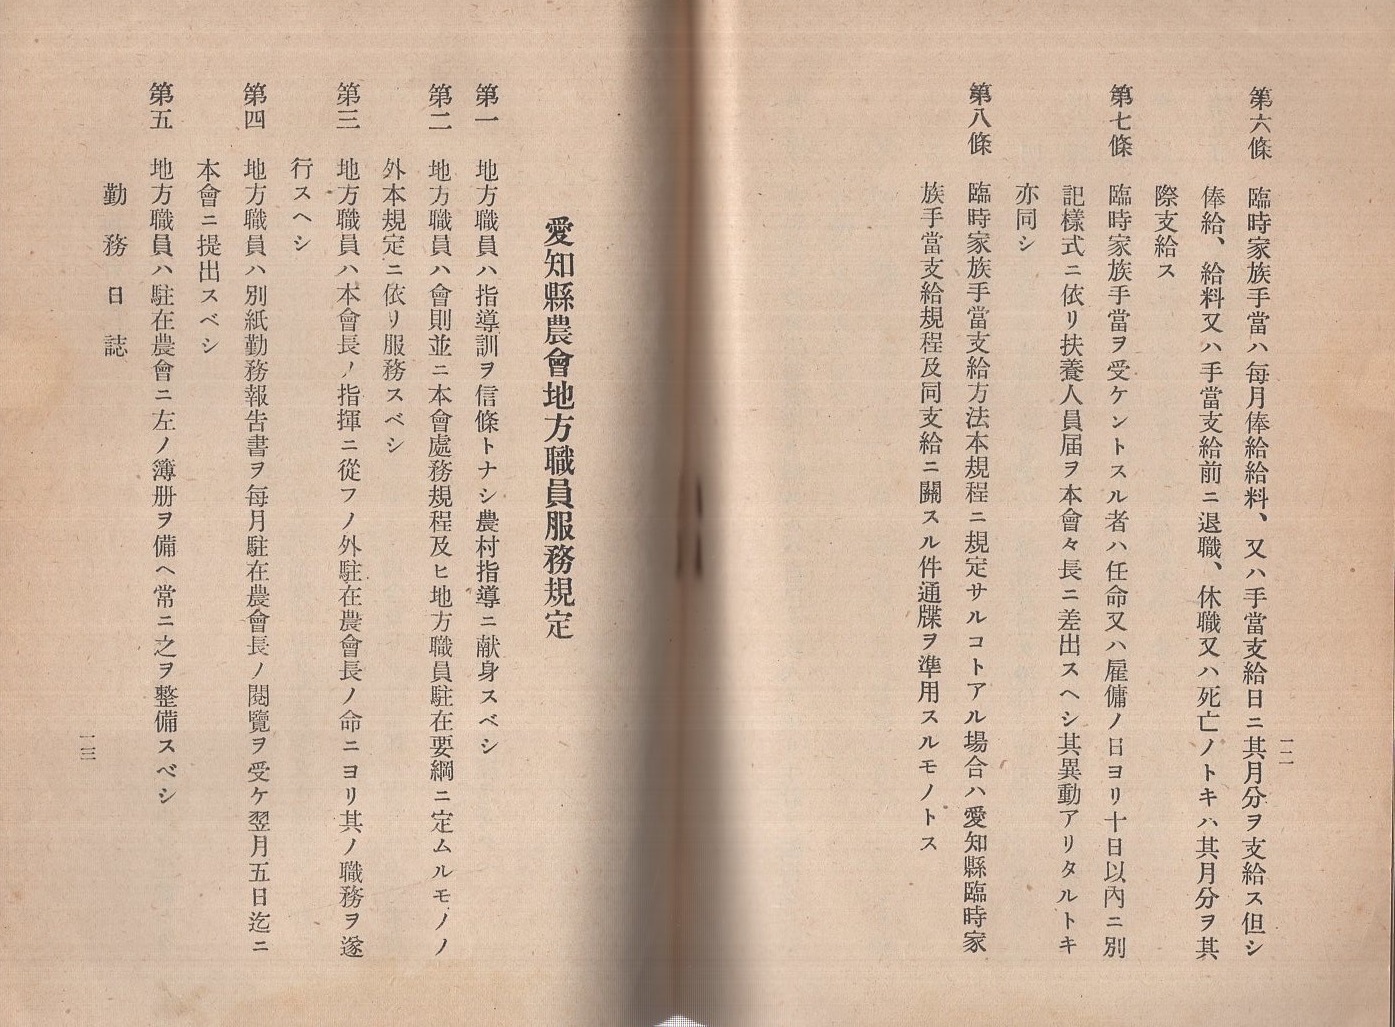 第六條　臨時家族手當ハ每月俸給給料、又ハ手當支給日ニ其月分ヲ支給ス但シ
俸給、給料又ハ手當支給前ニ退職、休職又ハ死亡ノトキハ其月分ヲ其
際支給ス
第七條　臨時家族手當ヲ受ケントスル者ハ任命又ハ雇傭ノ日ヨリ十日以內ニ別
記樣式ニ依リ扶養人員届ヲ本會々長ニ差出スヘシ其異動アリタルトキ
亦同シ
第八條　臨時家族手當支給方法本規程ニ規定サルコトアル場合ハ愛知縣臨時家
族手當支給規程及同支給ニ關スル件通牒ヲ準用スルモノトス
一二
愛知縣農會地方職員服務規定
第一　地方職員ハ指導訓ヲ信條トナシ農村指導ニ献身スベシ
第二　地方職員ハ會則並ニ本會處務規程及ヒ地方職員駐在要綱ニ定ムルモノノ
外本規定ニ依リ服務スベシ
第三　地方職員ハ本會長ノ指揮ニ從フノ外駐在農會長ノ命ニヨリ其ノ職務ヲ遂
行スヘシ
第四　地方職員ハ別紙勤務報告書ヲ每月駐在農會長ノ閱覽ヲ受ケ翌月五日迄ニ
本會ニ提出スベシ
第五　地方職員ハ駐在農會ニ左ノ簿册ヲ備ヘ常ニ之ヲ整備スベシ
勤務日誌
一三